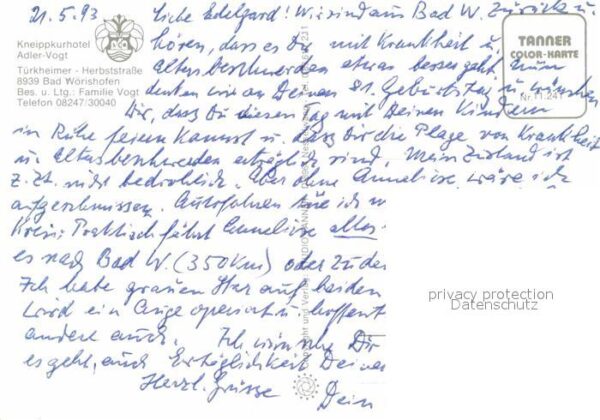 21.5.93
Kneippkurhotel
Adler-Vogt
Türkheimer - Herbststraße
8939 Bad Wörishofen
Bes. u. Ltg.: Familie Vogt
Telefon 08247/30040
TANNER
COLOR-KARTE
Nr. 11.241
Liebe Edelgard! Wir sind aus Bad W. zurück u.
hören, dass es Dir mit Krankheit u.
Altersbeschwerden etwas besser geht. Nun
denken wir an Deinen 81. Geburtstag u. wünschen
Dir, dass Du diesen Tag mit Deinen Kindern
in Ruhe feiern kannst u. dass Dir die Plage von Krankheit
u. Altersbeschwerden erträglich sind. Mein Zustand ist
z. Zt. nicht bedrohlich. Aber ohne Anneliese wäre ich
aufgeschmissen. Autofahren tue ich
Kreis. Praktisch fährt Anneliese alles
es nach Bad W. (350 km) oder zu de
Ich habe grauen Star auf beiden
wird ein Auge operiert u. hoffent
andere auch. Ich wünsche Dir
es geht, auch Erträglichkeit Deiner
Herzl. Grüsse Dein
privacy protection
Datenschutz